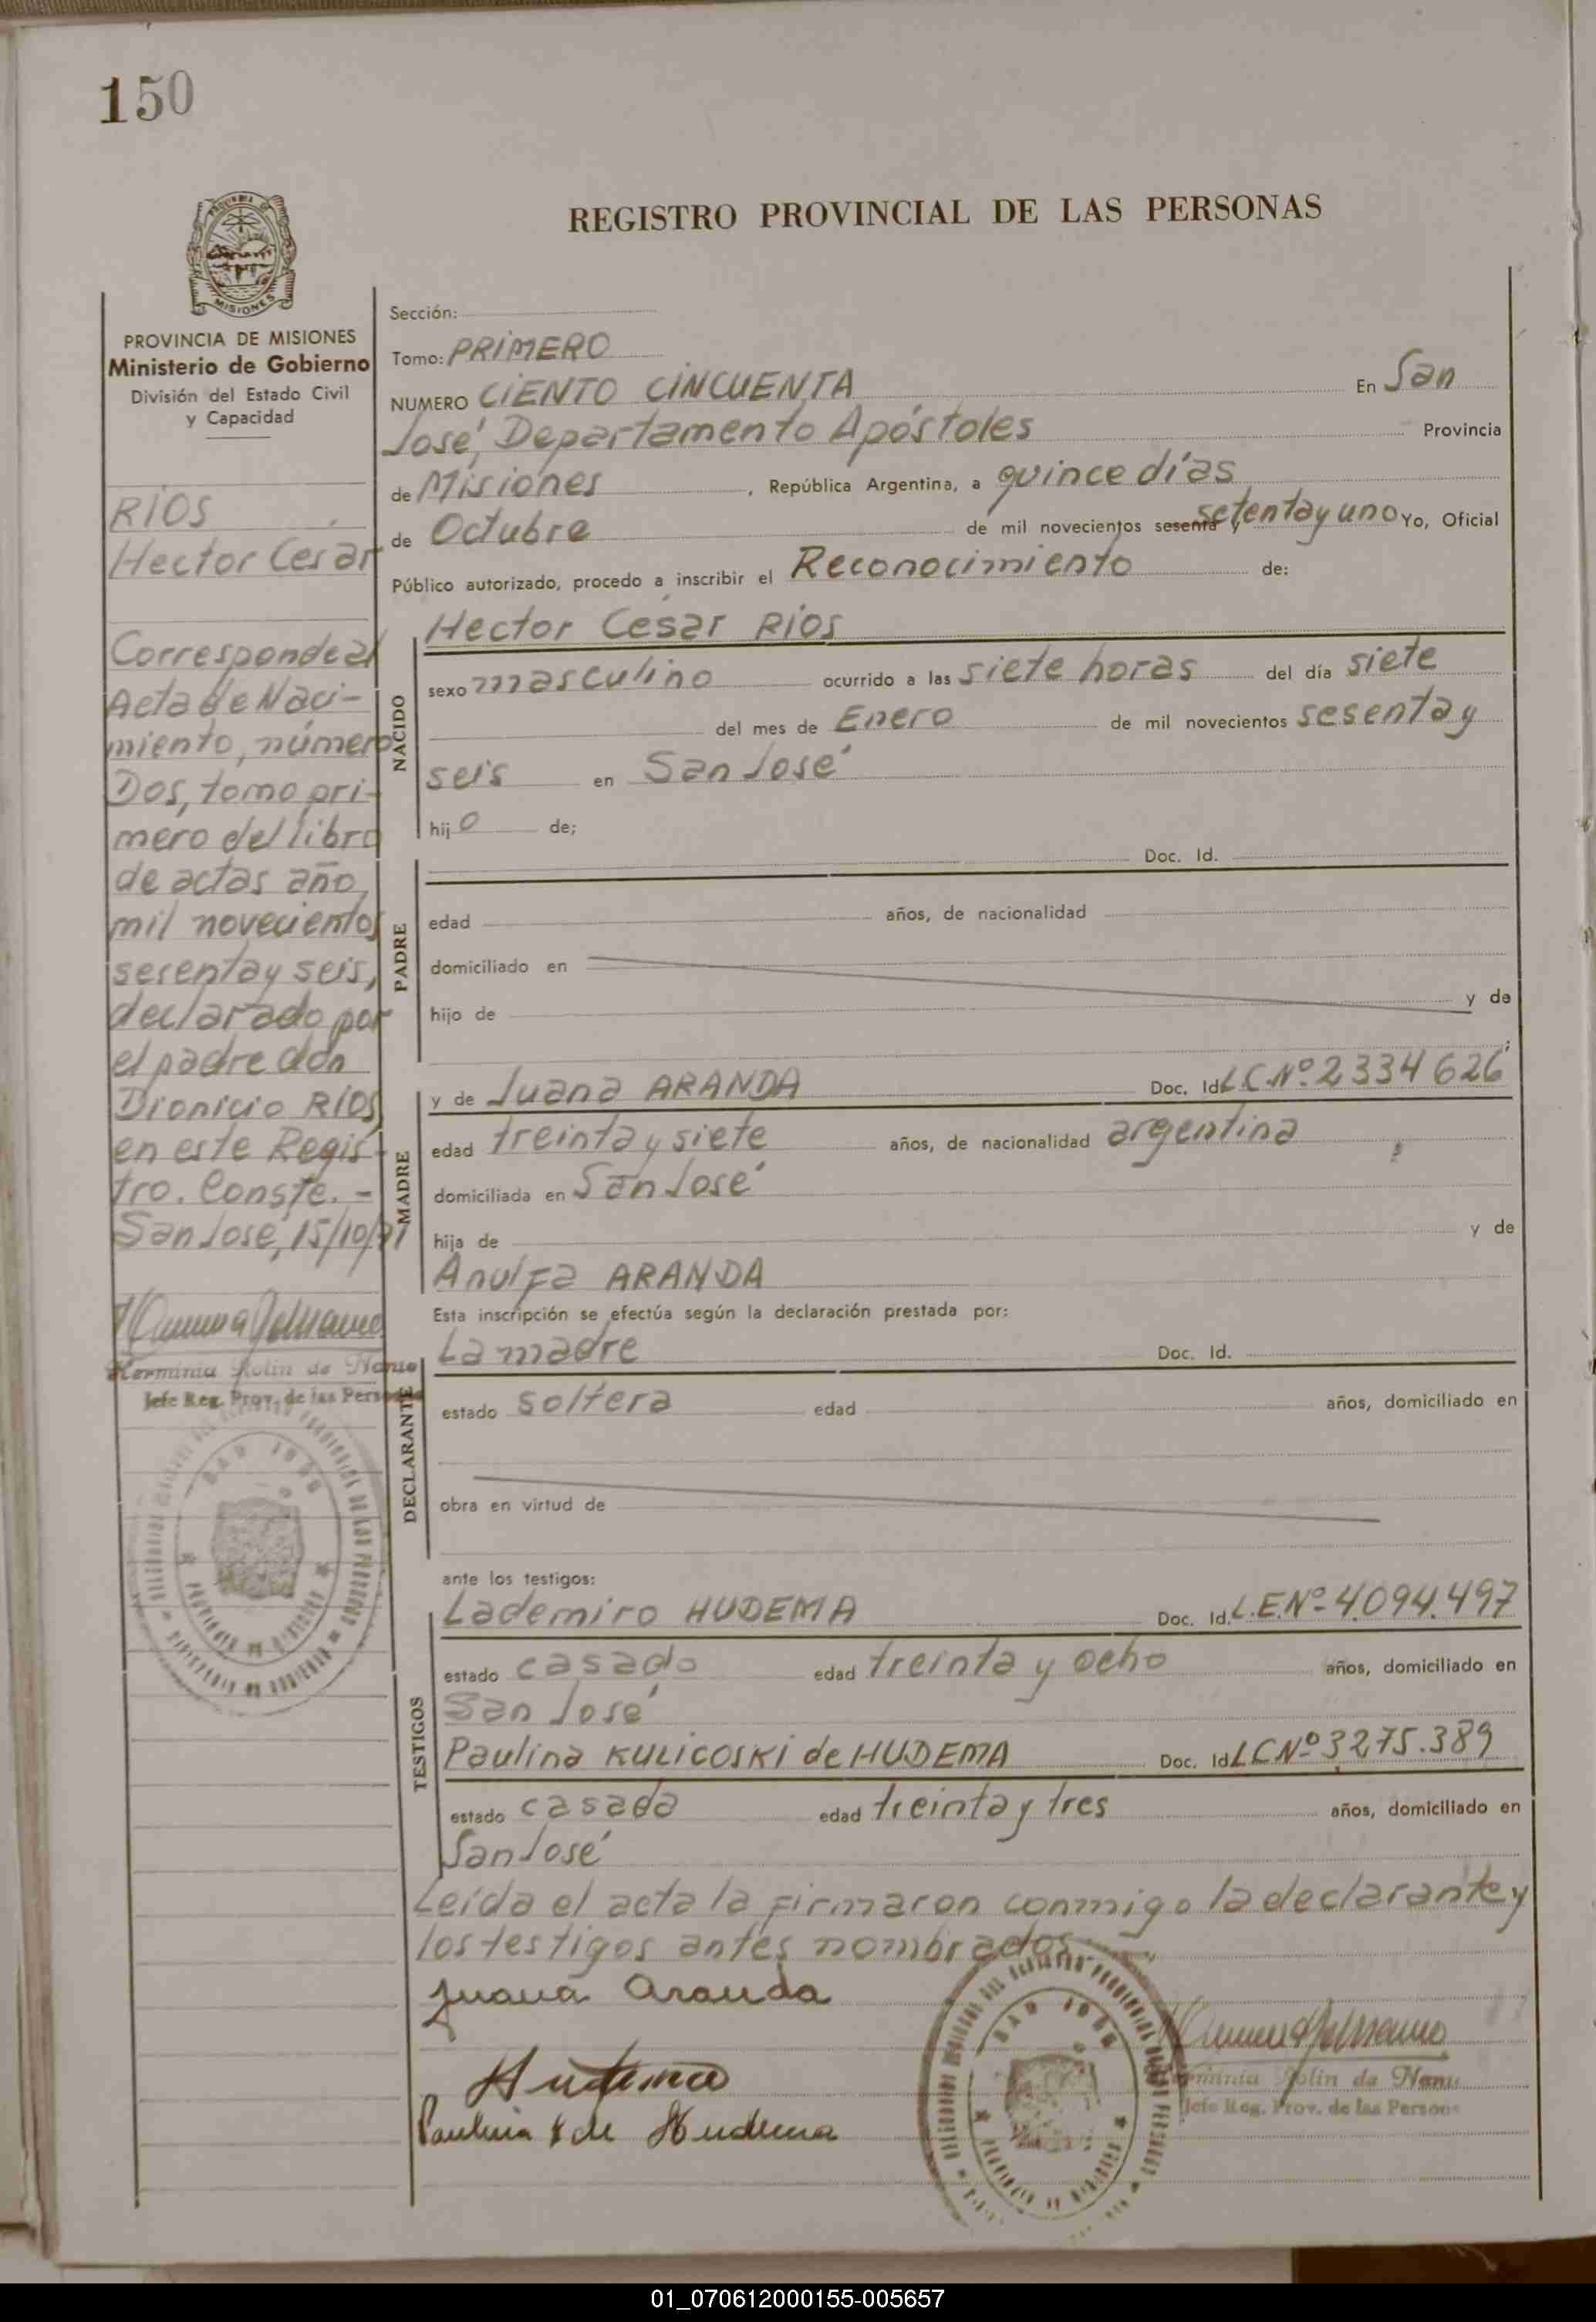 150
REGISTRO PROVINCIAL DE LAS PERSONAS
MISIONES
PROVINCIA DE MISIONES
Ministerio de Gobierno
División del Estado Civil
y Capacidad
RÍOS
Hector Cesar
Corresponde al
Acta de Naci-
miento, número
Dos, tomo pri-
mero del libro
de actas año
mil novecientos
sesenta y seis,
declarado por
el padre don
Dionicio RÍOS
en este Regis-
tro. Conste. -
San José, 15/10/71
Herminia Rolin de Nanuo
Jefe Reg. Prov. de las Personas
Sección:
Tomo: PRIMERO
NUMERO CIENTO CINCUENTA En San
José, Departamento Apóstoles Provincia
de Misiones, República Argentina, a quince días
de Octubre de mil novecientos sesenta y setenta y uno Yo, Oficial
Público autorizado, procedo a inscribir el Reconocimiento de:
NACIDO
Hector Cesar RÍOS
sexo masculino ocurrido a las siete horas del día siete
del mes de Enero de mil novecientos sesenta y
seis en San José
hijo de;
PADRE
Doc. Id.
edad años, de nacionalidad
domiciliado en
hijo de y de
MADRE
y de Juana ARANDA Doc. Id. L.C.Nº 2334626
edad treinta y siete años, de nacionalidad argentina
domiciliada en San José
hija de y de
Anulfa ARANDA
Esta inscripción se efectúa según la declaración prestada por:
DECLARANTE
La madre Doc. Id.
estado soltera edad años, domiciliado en
obra en virtud de
ante los testigos:
TESTIGOS
Lademiro HUDEMA Doc. Id. L.E.Nº 4.094.497
estado casado edad treinta y ocho años, domiciliado en
San José
Paulina KULICOSKI de HUDEMA Doc. Id. L.C Nº 3.275.389
estado casada edad treinta y tres años, domiciliado en
San José
Leída el acta la firmaron conmigo la declarante y
los testigos antes nombrados
Juana Aranda
Hudema
Paulina K de Hudema
Jefe Reg. Prov. de las Persona
01_070612000155-005657